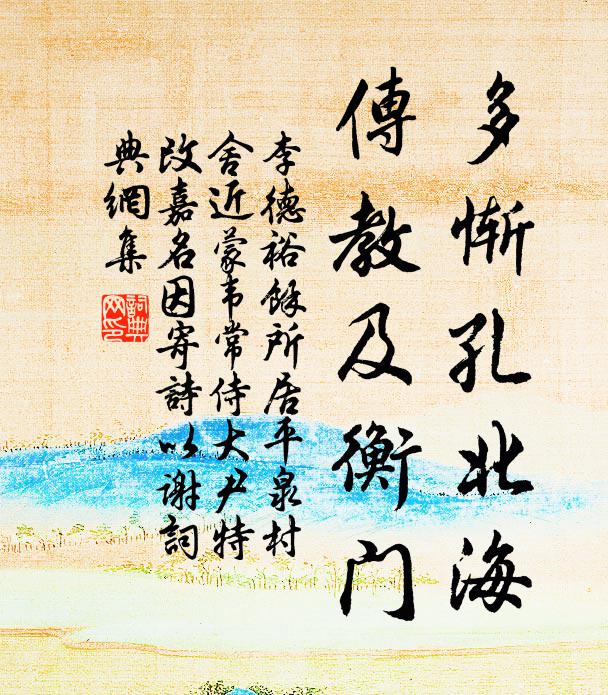 多慚孔北海
傳教及衡門
李德裕餘所居平泉村
舍近蒙韦常侍大尹特
改嘉名因寄詩以谢詞
典網集
詞典
网印